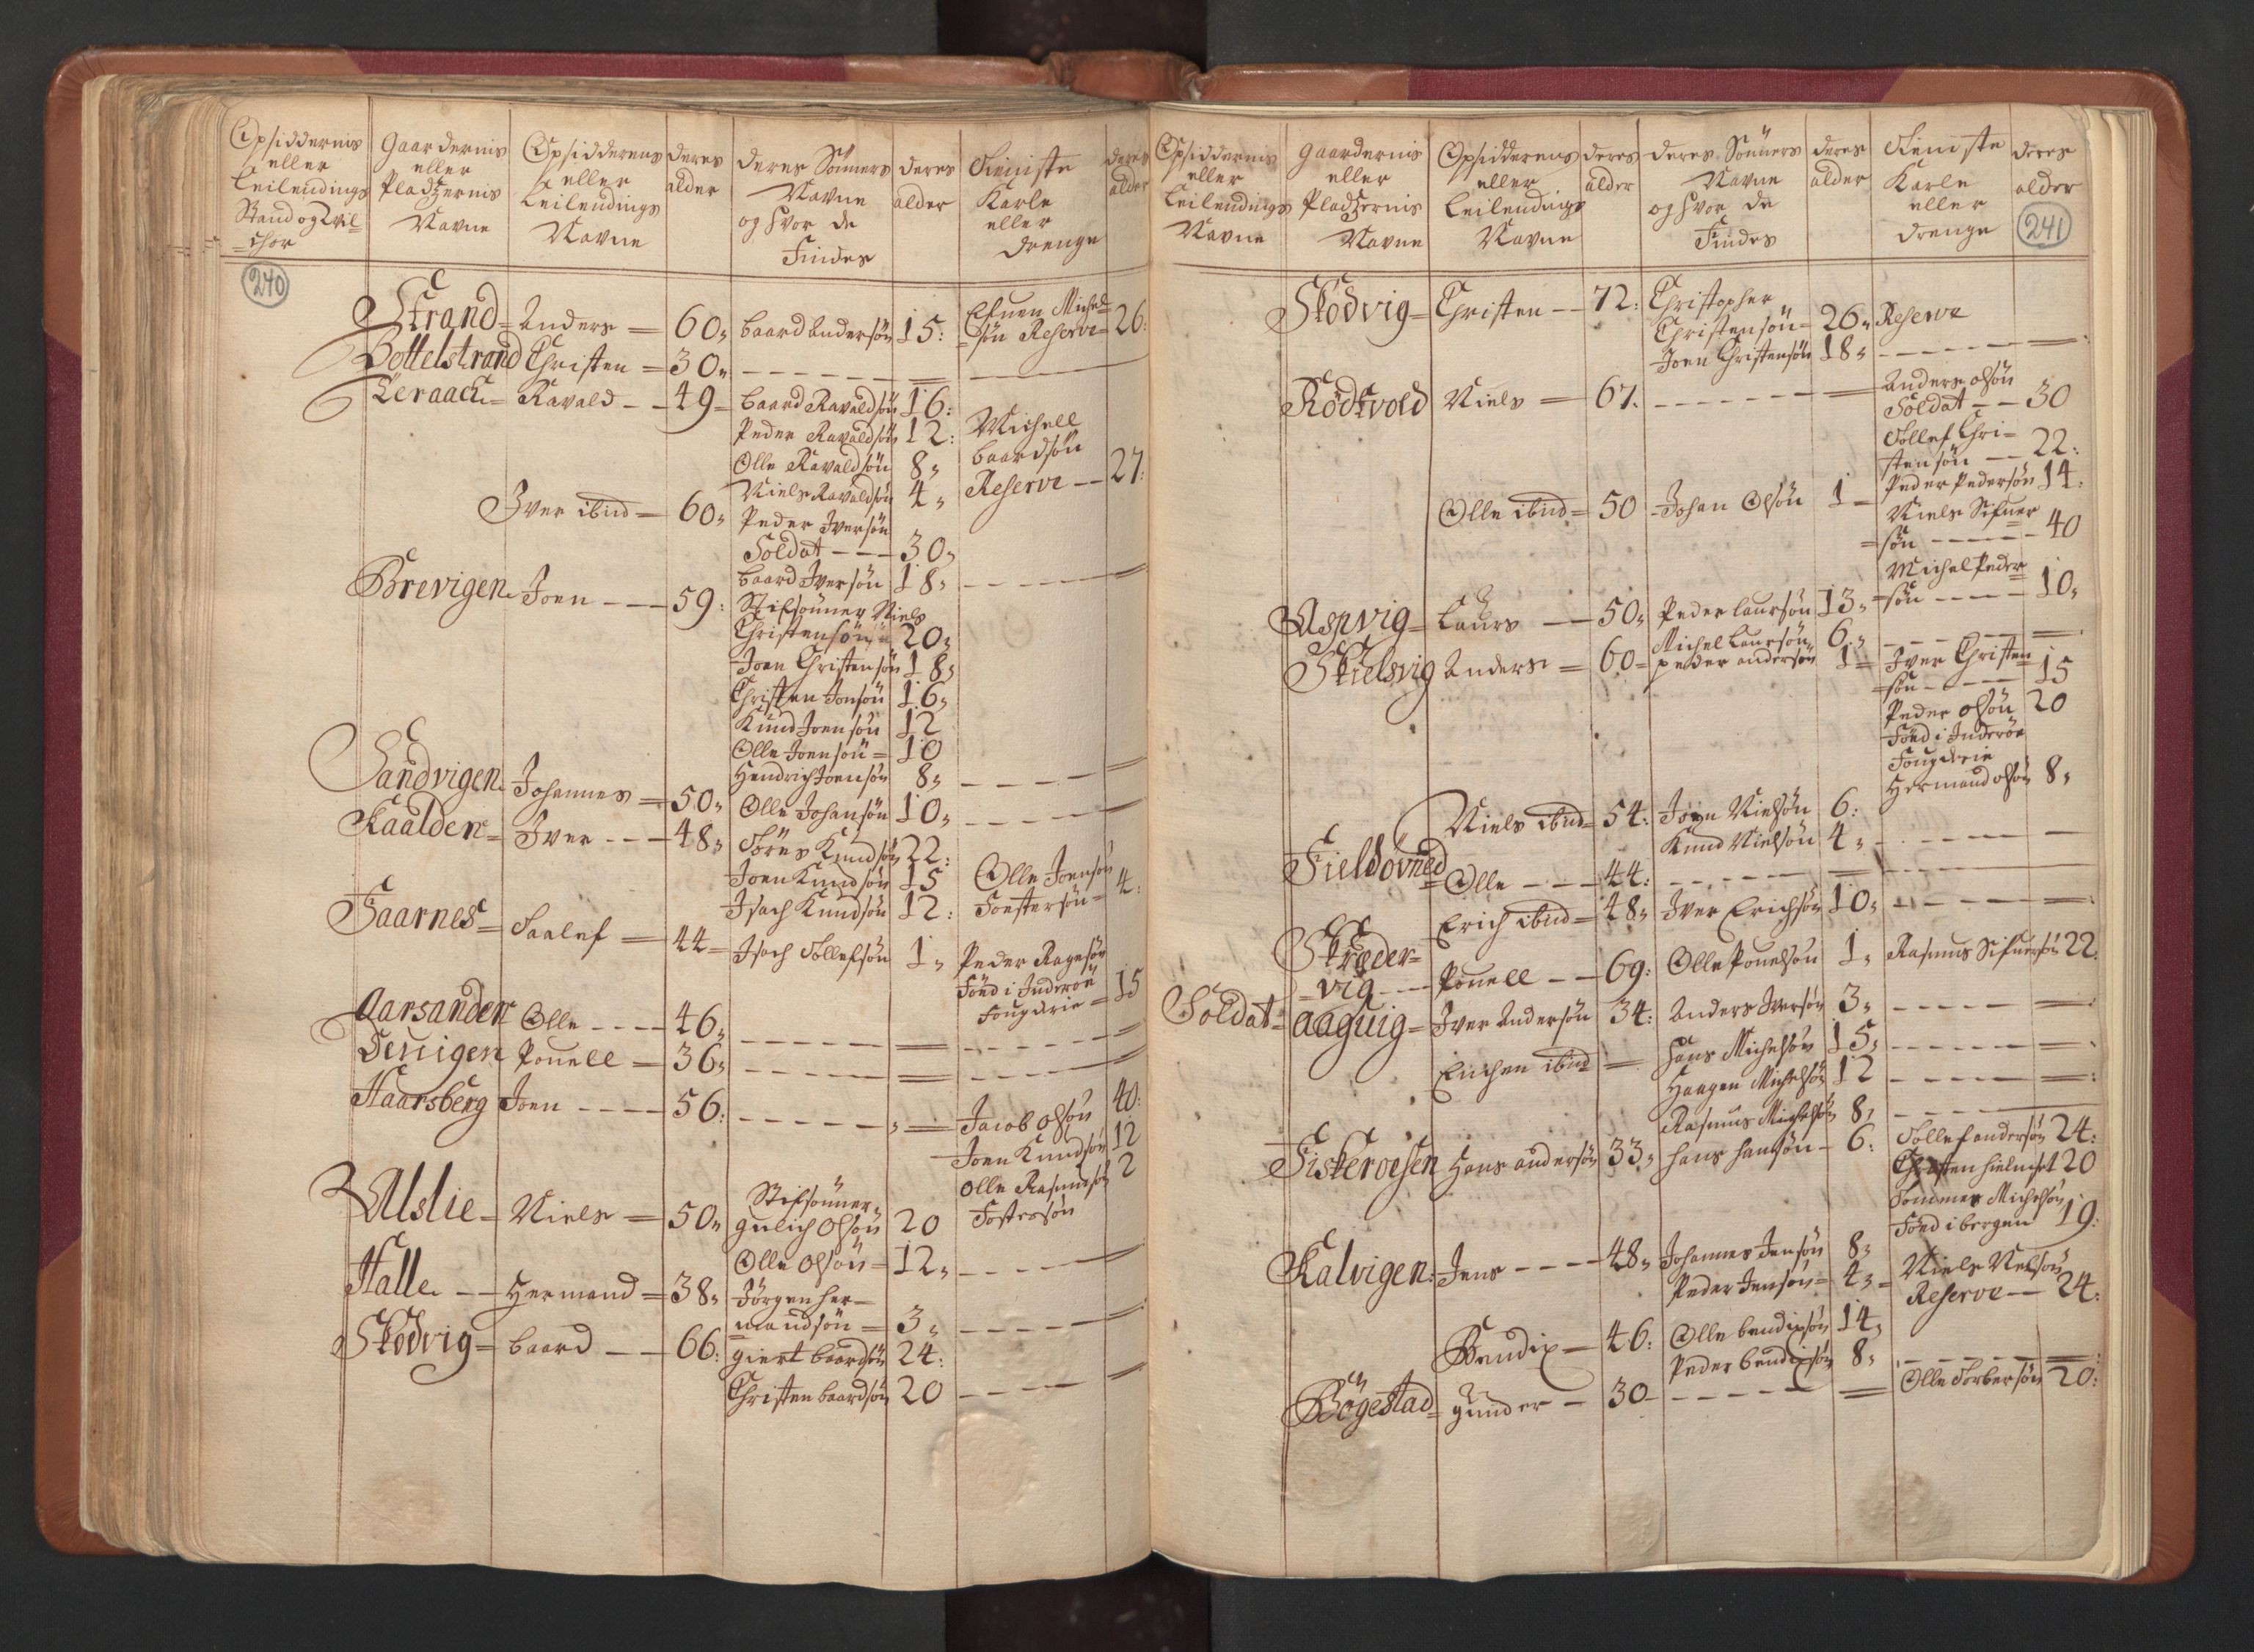 Opsiddernis eller Leilendings Stand og Vil=chor
Gaardernis eller Pladzernis Navne
Opsidderens eller Leilendings Navne
deres alder
deres Sönners Navne og hvor de Findes
deres alder
Tieniste Karle eller drenge
deres alder
240
Strand = Anders = 60 baard Andersön 15: Michel=sön Reserve = 26:
Bottelstrand Christen = 30
Leraach = Ravald - 49 = baard Ravaldsön 16:
Peder Ravaldsön 12: Michell
Olle Ravaldsön 8 baardsön
Niels Ravaldsön 4 Reserve - 27:
Iver ibid = 60 Peder Iversön
Soldat - - 30
baard Iversön 18
Brevigen Joen - - 59: Stifsönner Niels
Christensön = 20
Joen Christensön 18
Christen Jonsön 16
Knud Joensön 12
Olle Joensön = 10
Hendrich Joensön 8
Sandvigen Johannes = 50 Olle Johansön 10
Kaalden = Iver - - 48 Knudsön 22:
Joen Knudsön 15 Olle Joensön
Isach Knudsön 12: Fostersön = 4:
Taarnes = Taalef = 44 = Isach Tollefsön 1 Peder
Föed i Inderöe
Fougderie = 15
Aarsander Olle - - 46
Pouell = 36
Haarsberg Joen - - 56: Jacob Olsön 40:
Joen Knudsön 12
Olle Rasmussön 2
Fostersön
Ulslie = Niels = 50 Stifsönner
Olsön 20
Olle Olsön = 12
Halle - - Hermand = 38 Jörgen her=
mandsön = 3
Skodvig = baard - - 66: giert baardsön 24:
Christen baardsön 20
Opsiddernis eller Leilendings Navne
gaardernis eller Pladzernis Navne
Opsidderens eller Leilendings Navne
deres alder
deres Sönners Navne og hvor de Findes
deres alder
Tieniste Karle eller drenge
deres alder
241
Skodvig = Christen - - 72: Christopher
Christensön = 26 Reserve
Joen Christensön 18
Rödsvold Niels = 67. Anders olsön
Soldat - - 30
Tollef Chri=
stensön - - 22:
Peder Pedersön 14:
Olle ibid = 50 Johan Olsön 1 = Niels
=sön - - - 40
Michel Peder
=sön - - - 10
Aspvig = Laurs - 50 Peder Laursön 13
Michel Laursön 6
Skielsvig Anders = 60 = peder andersön 1 = Iver Christen
=sön - - - 15
Peder olsön 20
Föed i Inderöe
Fougderie
Hermand olsön 8
Niels ibid = 54: Joen Nielsön 6:
Knud Nielsön 4
Fieldövned = Olle - - - 44:
Erich ibid = 48 Iver Erichsön 10
Skreder=
=vig - - Pouell - - 69: Olle Pouelsön 1 Rasmus 22
Soldat = aagvig = Iver Andersön 34: Anders Iversön 3
Enchen ibid = Hans Michelsön 15
Haagen Michelsön 12
Rasmus Michelsön 8
Fiskeroesen Hans andersön 33 hans hansön - 6: Tollef andersön 24:
20
Michelsön
Föed i bergen 19:
Kalvigen: Jens - - - 48 Johannes Jensön 8
Peder Jensön = 4 = Niels Nelsön
Reserve - 24:
Bendix = 46: Olle bendixsön 14
Peder bendixsön 8
Bögestad = gunder - 30 Olle Torbersön 20: